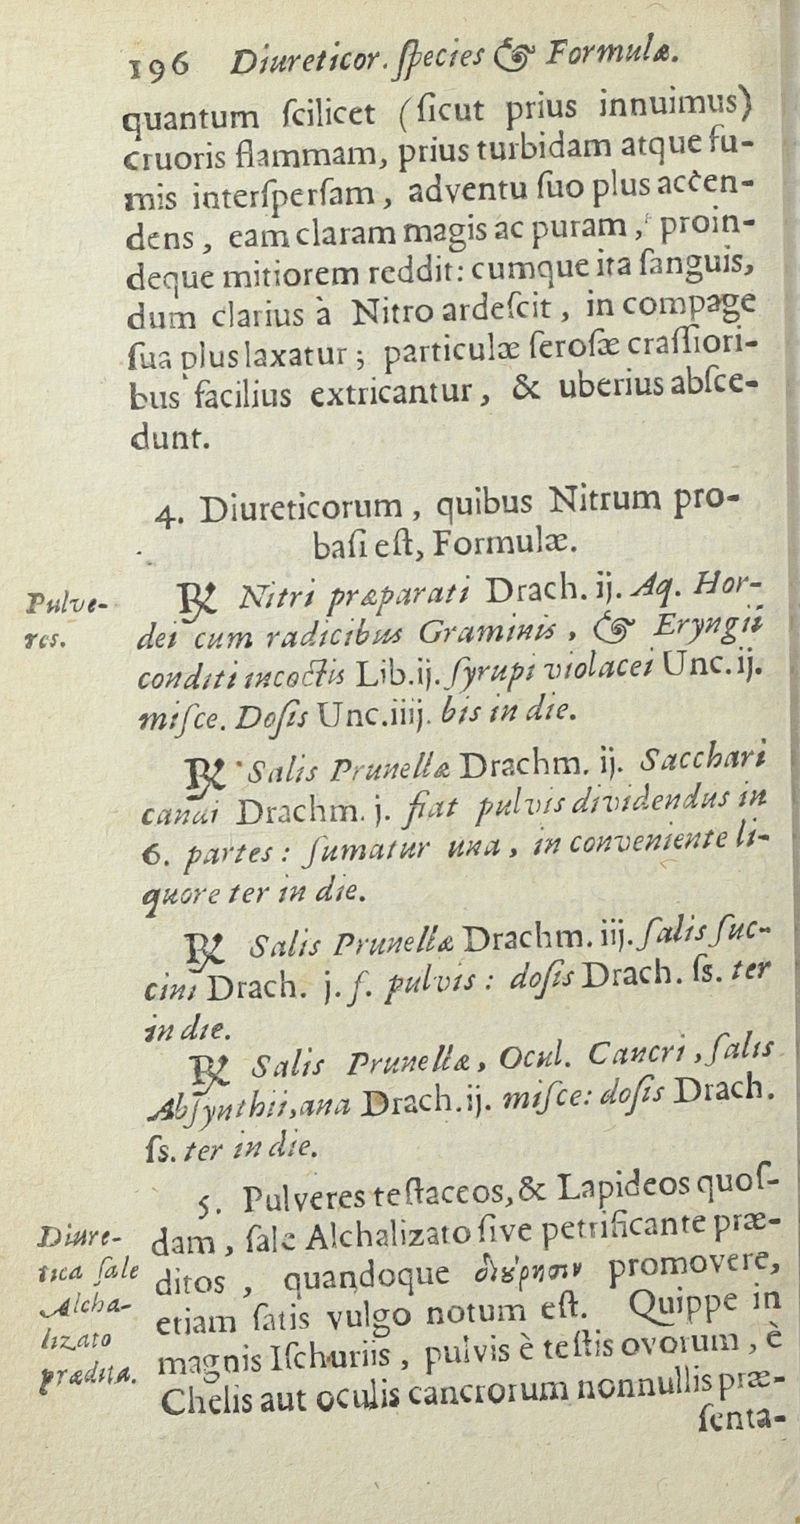 196 Diureticor. ſpecies & Formulæ.
quantum ſcilicet (ſicut prius innuimus)
cruoris flammam, prius turbidam atque fu-
mis interſperſam, adventu ſuo plus accen-
dens, eam claram magis ac puram, proin-
deque mitiorem reddit: cumque ita ſanguis,
dum clarius à Nitro ardeſcit, in compage
ſua plus laxatur; particulæ ſeroſæ craſſiori-
bus facilius extricantur, & uberius abſce-
dunt.
4. Diureticorum, quibus Nitrum pro-
baſi eſt, Formulæ.
Pulve-
res.
℞ Nitri præparati Drach. ij. Aq. Hor-
dei cum radicibus Graminis, & Eryngii
conditi incoctis Lib.ij. ſyrupi violacei Unc. ij.
miſce. Doſis Unc.iiij. bis in die.
℞ Salis Prunellæ Drachm. ij. Sacchari
candi Drachm. j. fiat pulvis dividendus in
6. partes: ſumatur una, in conveniente li-
quore ter in die.
℞ Salis Prunellæ Drachm. iij. ſalis ſuc-
cini Drach. j. ſ. pulvis: doſis Drach. ſs. ter
in die.
℞ Salis Prunellæ, Ocul. Cancri, ſalis
Abſynthii, ana Drach.ij. miſce: doſis Drach.
ſs. ter in die.
Diure-
tica ſale
Alcha-
lizato
prædita.
5. Pulveres teſtaceos, & Lapideos quoſ-
dam, ſale Alchalizato ſive petrificante præ-
ditos, quandoque promovere,
etiam ſatis vulgo notum eſt. Quippe in
magnis Iſchuriis, pulvis è teſtis ovorum, è
Chelis aut oculis cancrorum nonnullis præ-
ſenta-